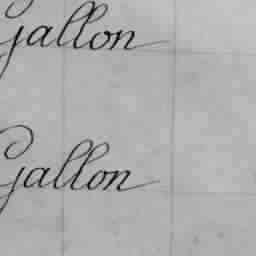 Gallon
Gallon